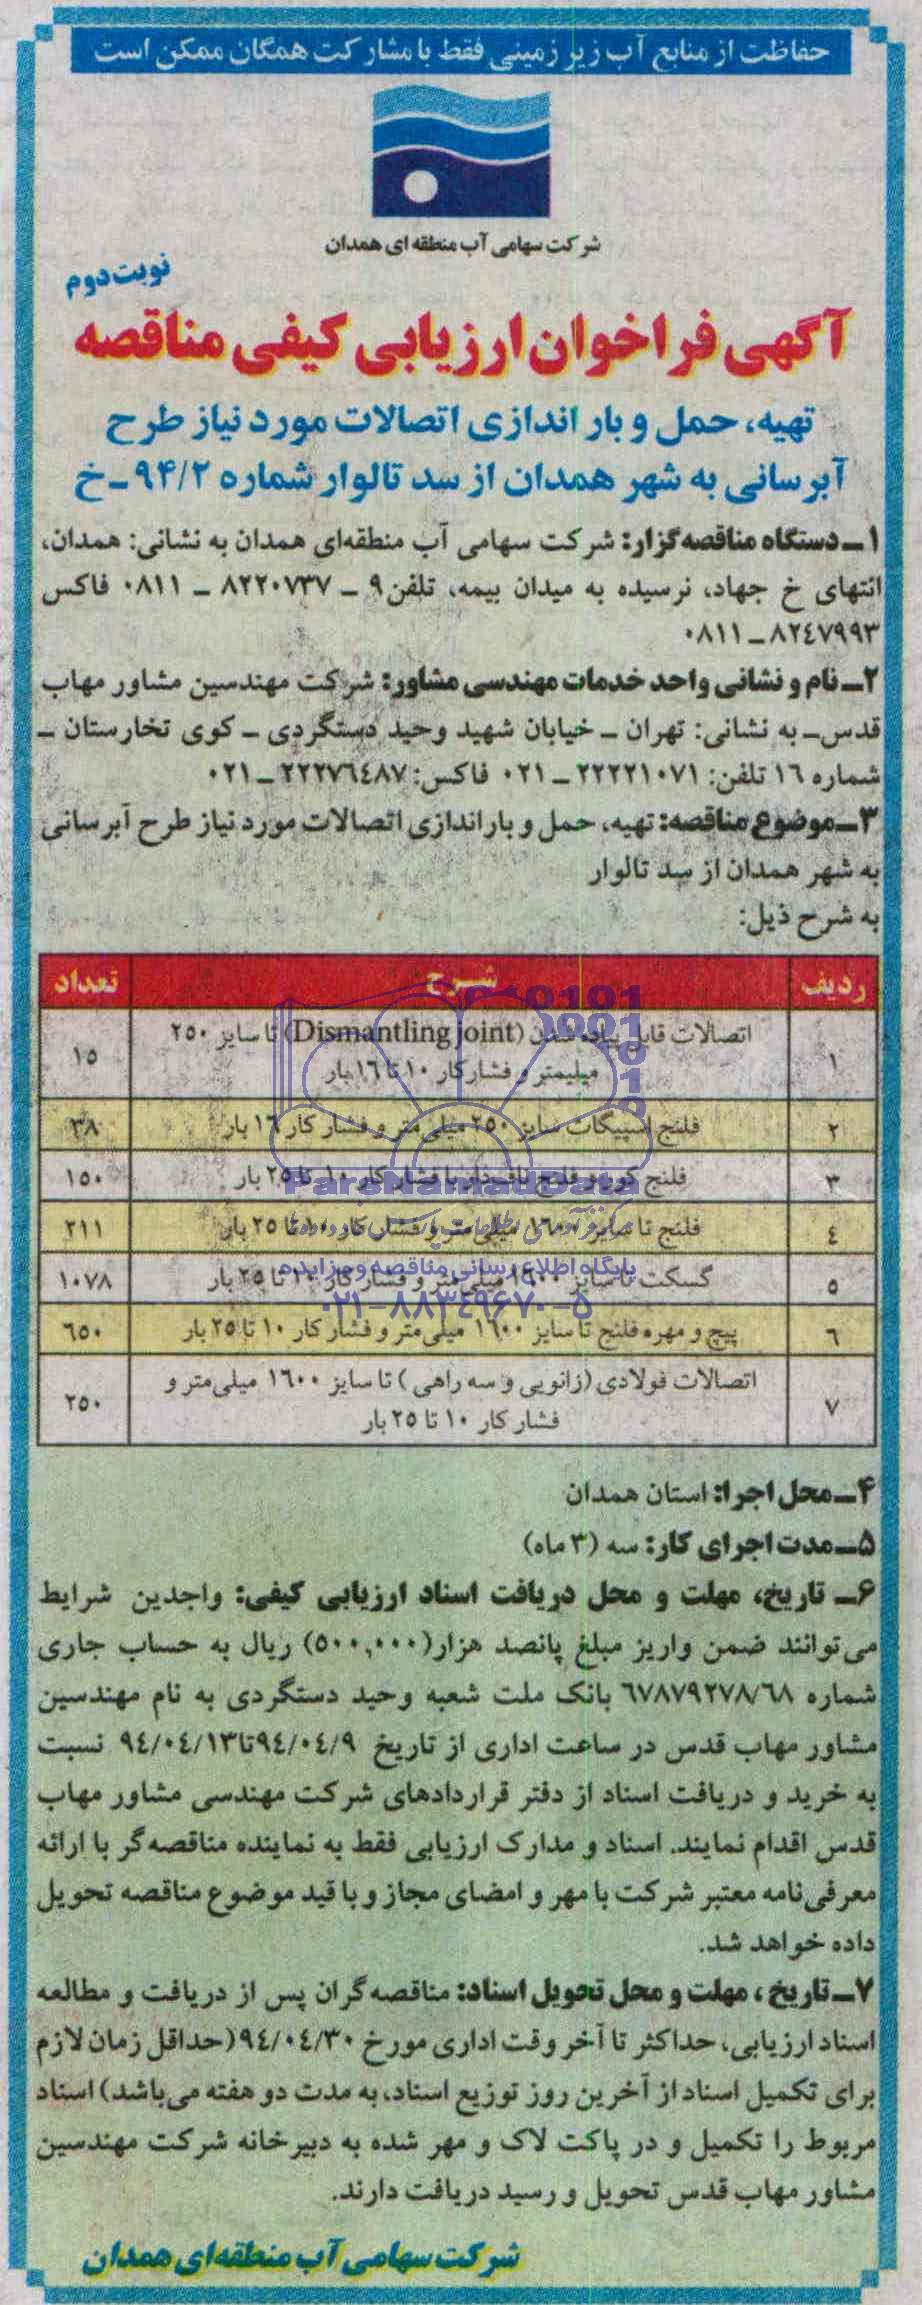 حفاظت از منابع آب زیرزمینی فقط با مشارکت همگان ممکن است
شرکت سهامی آب منطقه ای همدان
نوبت دوم
آگهی فراخوان ارزیابی کیفی مناقصه
تهیه، حمل و بار اندازی اتصالات مورد نیاز طرح
آبرسانی به شهر همدان از سد تالوار شماره ۹۴/۲-خ
۱- دستگاه مناقصه‌گزار: شرکت سهامی آب منطقه‌ای همدان به نشانی: همدان،
انتهای خ جهاد، نرسیده به میدان بیمه، تلفن ۹ - ۸۲۲۰۷۳۷ - ۰۸۱۱ فاکس
۸۲۴۷۹۹۳-۰۸۱۱
۲- نام و نشانی واحد خدمات مهندسی مشاور: شرکت مهندسین مشاور مهاب
قدس- به نشانی: تهران - خیابان شهید وحید دستگردی - کوی تخارستان -
شماره ۱۶ تلفن: ۲۲۲۲۱۰۷۱ - ۰۲۱ فاکس: ۲۲۲۷۶۴۸۷ - ۰۲۱
۳- موضوع مناقصه: تهیه، حمل و باراندازی اتصالات مورد نیاز طرح آبرسانی
به شهر همدان از سد تالوار
به شرح ذیل:
ردیف شـــرح تعداد
۱ اتصالات قابل پیاده شدن (Dismantling joint) تا سایز ۲۵۰
میلیمتر و فشارکار ۱۰ تا ۱۶ بار ۱۵
۲ فلنج اسپیگات سایز ۲۵۰ میلی متر و فشار کار ۱۶ بار ۳۸
۳ فلنج کور و فلنج ناف‌دار با فشار کار ۱۰ تا ۲۵ بار ۱۵۰
۴ فلنج تا سایز ۱۶۰۰ میلی متر و فشار کار ۱۰ تا ۲۵ بار ۲۱۱
۵ گسکت تا سایز ۱۶۰۰ میلی متر و فشار کار ۱۰ تا ۲۵ بار ۱۰۷۸
۶ پیچ و مهره فلنج تا سایز ۱۶۰۰ میلی متر و فشار کار ۱۰ تا ۲۵ بار ۶۵۰
۷ اتصالات فولادی (زانویی و سه راهی) تا سایز ۱۶۰۰ میلی‌متر و
فشار کار ۱۰ تا ۲۵ بار ۲۵۰
ParsNamadData
پایگاه اطلاع رسانی مناقصه و مزایده
۰۲۱-۸۸۳۴۹۶۷۰-۵
۴- محل اجرا: استان همدان
۵- مدت اجرای کار: سه (۳ ماه)
۶- تاریخ، مهلت و محل دریافت اسناد ارزیابی کیفی: واجدین شرایط
می‌توانند ضمن واریز مبلغ پانصد هزار(۵۰۰,۰۰۰) ریال به حساب جاری
شماره ۶۷۸۷۹۲۷۸/۶۸ بانک ملت شعبه وحید دستگردی به نام مهندسین
مشاور مهاب قدس در ساعت اداری از تاریخ ۹۴/۰۴/۹تا۹۴/۰۴/۱۳ نسبت
به خرید و دریافت اسناد از دفتر قراردادهای شرکت مهندسی مشاور مهاب
قدس اقدام نمایند. اسناد و مدارک ارزیابی فقط به نماینده مناقصه‌گر با ارائه
معرفی‌نامه معتبر شرکت با مهر و امضای مجاز و با قید موضوع مناقصه تحویل
داده خواهد شد.
۷- تاریخ، مهلت و محل تحویل اسناد: مناقصه‌گران پس از دریافت و مطالعه
اسناد ارزیابی، حداکثر تا آخر وقت اداری مورخ ۹۴/۰۴/۳۰(حداقل زمان لازم
برای تکمیل اسناد از آخرین روز توزیع اسناد، به مدت دو هفته می‌باشد) اسناد
مربوط را تکمیل و در پاکت لاک و مهر شده به دبیرخانه شرکت مهندسین
مشاور مهاب قدس تحویل و رسید دریافت دارند.
شرکت سهامی آب منطقه‌ای همدان